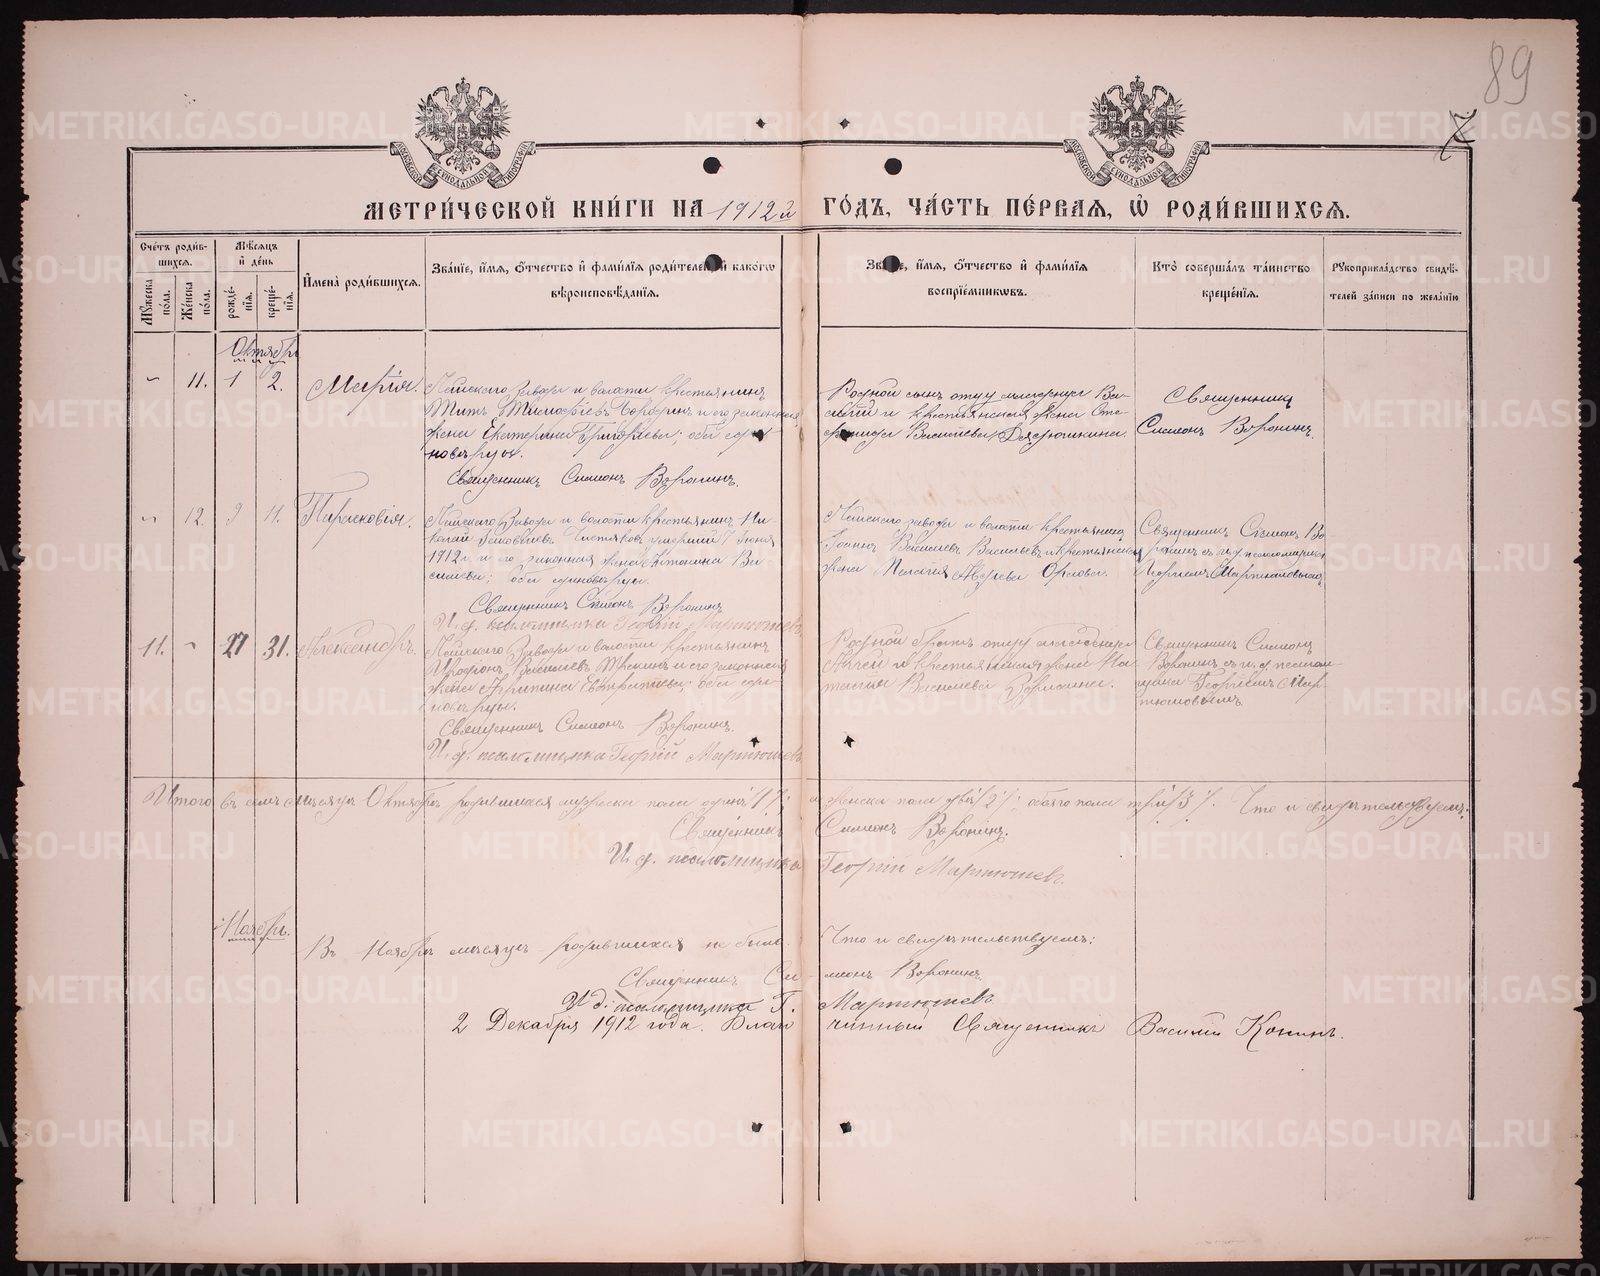 89
7
МЕТРИ́ЧЕСКОЙ КНИ́ГИ НА 1912й ГО́ДЪ, ЧА́СТЬ ПЕ́РВАЯ, Ѡ РОДИ́ВШИХСЯ.
Сче́тъ роди́вшихся.
Му́жеска по́ла.
Же́нска по́ла.
Мѣ́сяцъ и де́нь
рожде́нїя.
креще́нїя.
И́мена роди́вшихся.
Зва́нїе, и́мя, о́тчество и фами́лїя роди́телей, и како́гѡ
вѣроисповѣ́данїя.
Зва́нїе, и́мя, о́тчество и фами́лїя
воспрїе́мникѡвъ.
Кто̀ соверша́лъ та́инство
креще́нїя.
Рукоприкла́дство свидѣ́телей за́писи по жела́нїю
Октябрь
11. 1 2. Марія.
завода и волости крестьянинъ
Титъ и его законная
жена Екатерина Григорьева; оба едино-
вѣрцы.
Священникъ Симеонъ Воронинъ.
Родной сынъ отцу младенца Ва-
силій и крестьянская жена Сте-
фанида Васильева
Священникъ
Симеонъ Воронинъ.
12. 9 11. Парасковія.
завода и волости крестьянинъ Ни-
колай умершій 7 Іюня
1912 г. и его законная жена Антонина Ва-
сильева; оба единовѣрцы.
Священникъ Симеонъ Воронинъ
И. д. псаломщика Георгій Мартюшевъ
завода и волости крестьянинъ
Іоаннъ Васильевъ Васильевъ и крестьянская
жена Пелагія Орлова.
Священникъ Симеонъ Во-
ронинъ съ и. д. псаломщика
Георгіемъ Мартюшовымъ
11. 27 31. Александръ.
завода и волости крестьянинъ
Васильевъ и его законная
жена Евстратьева; оба едино-
вѣрцы.
Священникъ Симеонъ Воронинъ.
И. д. псаломщика Георгій Мартюшевъ
Родной братъ отцу младенца
и крестьянская жена На-
талья Васильева
Священникъ Симеонъ
Воронинъ съ и. д. псалом-
щика Георгіемъ Мар-
тюшовымъ.
Итого въ семъ мѣсяцѣ Октябрѣ родившихся мужеска пола одинъ /1/; а женска пола два /2/; обоего пола три /3/. Что и свидѣтельствуемъ:
Священникъ Симеонъ Воронинъ.
И. д. псаломщика Георгій Мартюшевъ.
Ноябрь.
Въ Ноябрѣ мѣсяцѣ родившихся не было. Что и свидѣтельствуемъ:
Священникъ Симеонъ Воронинъ
И д. псаломщика Г. Мартюшевъ
2 Декабря 1912 года. Благочинный Священникъ Василій Конинъ.
METRIKI.GASO-URAL.RU